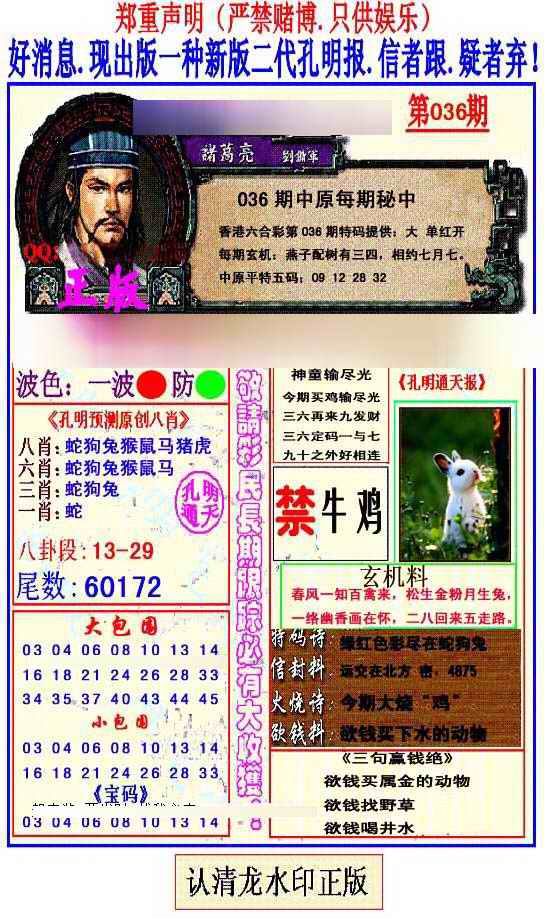 郑重声明（严禁赌博.只供娱乐）
好消息.现出版一种新版二代孔明报.信者跟.疑者弃！
第036期
諸葛亮
036 期中原每期秘中
香港六合彩第 036 期特码提供：大 单红开
每期玄机：燕子配树有三四，相约七月七。
中原平特五码：09 12 28 32
QQ:
正版
波色：一波 防
《孔明预测原创八肖》
八肖：蛇狗兔猴鼠马猪虎
六肖：蛇狗兔猴鼠马
三肖：蛇狗兔
一肖：蛇
孔明
通天
八卦段：13-29
尾数：60172
大包围
03 04 06 08 10 13 14
16 18 21 24 26 28 33
34 35 37 40 43 44 45
小包围
03 04 06 08 10 13 14
16 18 21 24 26 28 33
《宝码》
03 04 06 08 10 13 14
敬請彩民長期跟踪必有大收獲
神童输尽光
今期买鸡输尽光
三六再来九发财
三六定码一与七
九十之外好相连
《孔明通天报》
禁牛鸡
玄机料
春风一知百禽来，松生金粉月生兔，
一络幽香画在怀，二八回来五走路。
特码诗：绿红色彩尽在蛇狗兔
信封料：运交在北方 密．4875
火烧诗：今期大烧“鸡”
欲钱料：欲钱买下水的动物
《三句赢钱绝》
欲钱买属金的动物
欲钱找野草
欲钱喝井水
认清龙水印正版